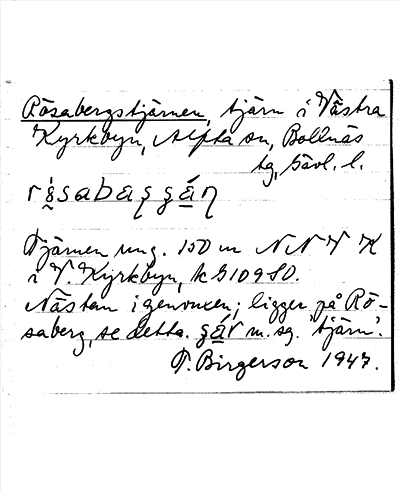 Rösabergstjärnen, tjärn i Västra
Kyrkbyn, Alfta sn, Bollnäs
tg, Gävl. l.
Tjärnen ung. 150 m NNV K
i V Kyrkbyn, k G109SO.
Nästan igenvuxen; ligger på Rö-
saberg, se detta. m. sg. 'tjärn'.
T. Birgerson 1947.